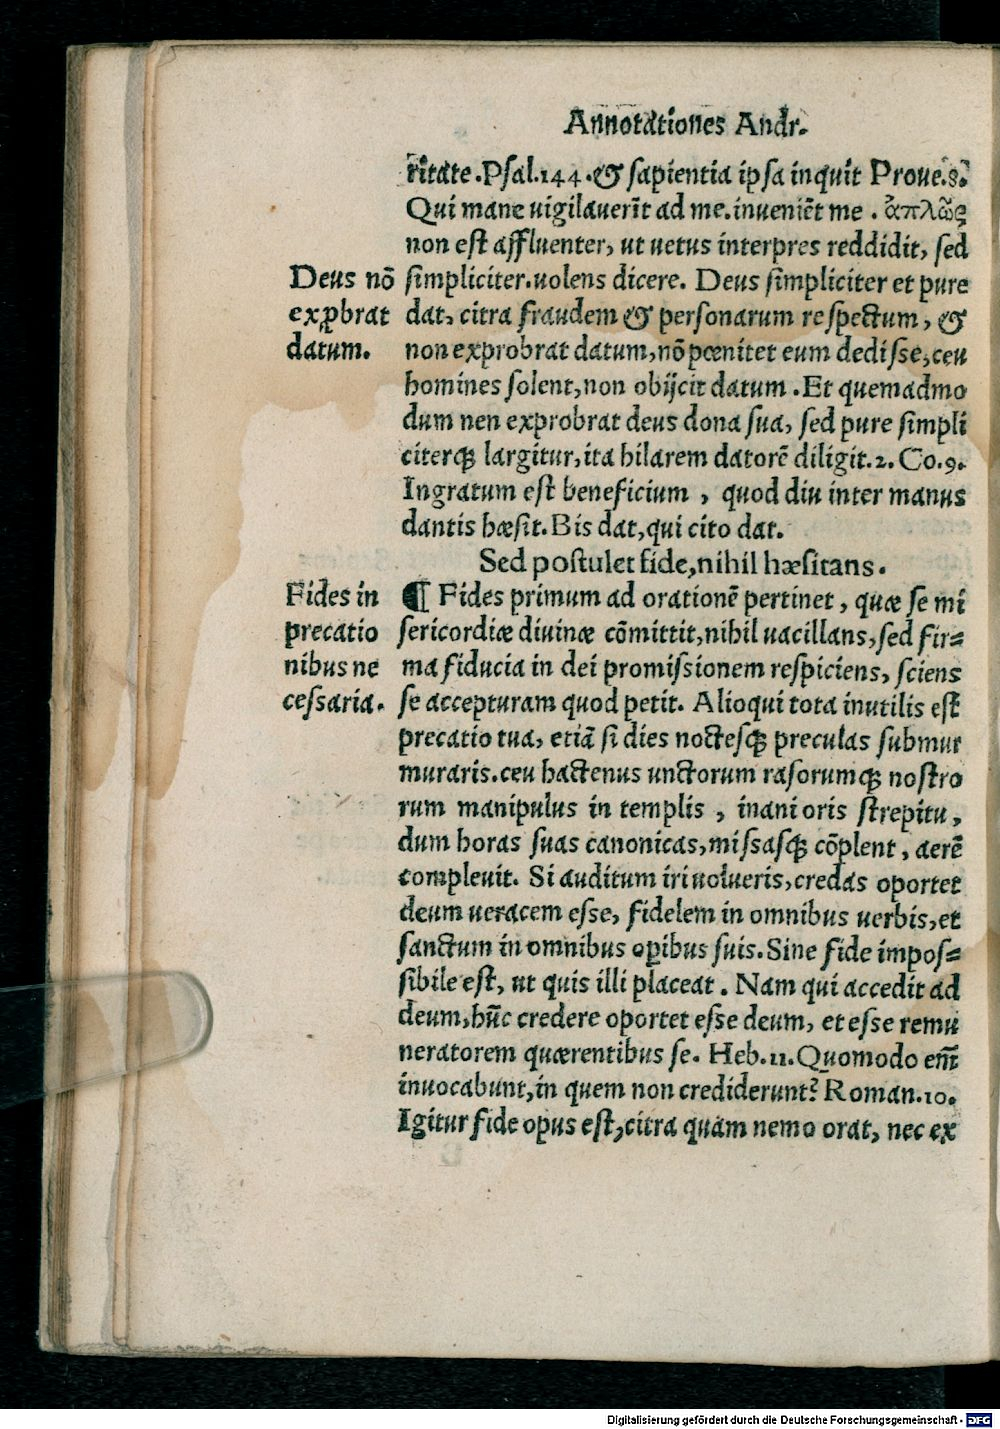 Annotationes Andr.
ritate.Psal.144.& sapientia ipsa inquit Proue.8.
Qui mane uigilauerīt ad me.inueniēt me . ἁπλῶς
non est affluenter, ut uetus interpres reddidit, sed
simpliciter.uolens dicere. Deus simpliciter et pure
dat, citra fraudem & personarum respectum, &
non exprobrat datum,nō pœnitet eum dedisse,ceu
homines solent,non obijcit datum .Et quemadmo
dum nen exprobrat deus dona sua, sed pure simpli
citerq̃ largitur,ita hilarem datorē diligit.2. Co.9.
Ingratum est beneficium , quod diu inter manus
dantis hæsit.Bis dat,qui cito dat.
Deus nō
exꝓbrat
datum.
Sed postulet fide,nihil hæsitans.
¶ Fides primum ad orationē pertinet, quæ se mi
sericordiæ diuinæ cōmittit,nihil uacillans,sed fir=
ma fiducia in dei promissionem respiciens, sciens
se accepturam quod petit. Alioqui tota inutilis est
precatio tua, etiā si dies noctesq̃ preculas submur
muraris.ceu hactenus unctorum rasorumq̃ nostro
rum manipulus in templis , inani oris strepitu,
dum horas suas canonicas,missasq̃ cōplent, aerē
compleuit. Si auditum iri uolueris,credas oportet
deum ueracem esse, fidelem in omnibus uerbis,et
sanctum in omnibus oꝑibus suis.Sine fide impos=
sibile est, ut quis illi placeat. Nam qui accedit ad
deum,hūc credere oportet esse deum, et esse remu
neratorem quærentibus se. Heb.11.Quomodo em̄
inuocabunt,in quem non crediderunt? Roman.10.
Igitur fide opus est,citra quam nemo orat, nec ex
Fides in
precatio
nibus ne
cessaria.
Digitalisierung gefördert durch die Deutsche Forschungsgemeinschaft - DFG